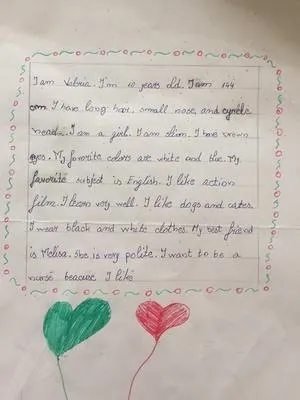 I am Valiria. I'm 10 years old. I am 144
cm. I have long hair, small nose, and cyrcle
head. I am a girl. I am slim. I have brown
eyes. My favorite colors are white and blue. My
favorite subject is English. I like action
film. I learn very well. I like dogs and cates.
I wear black and white clothes. My best friend
is Melisa. She is very polite. I want to be a
nurse beacuse I like